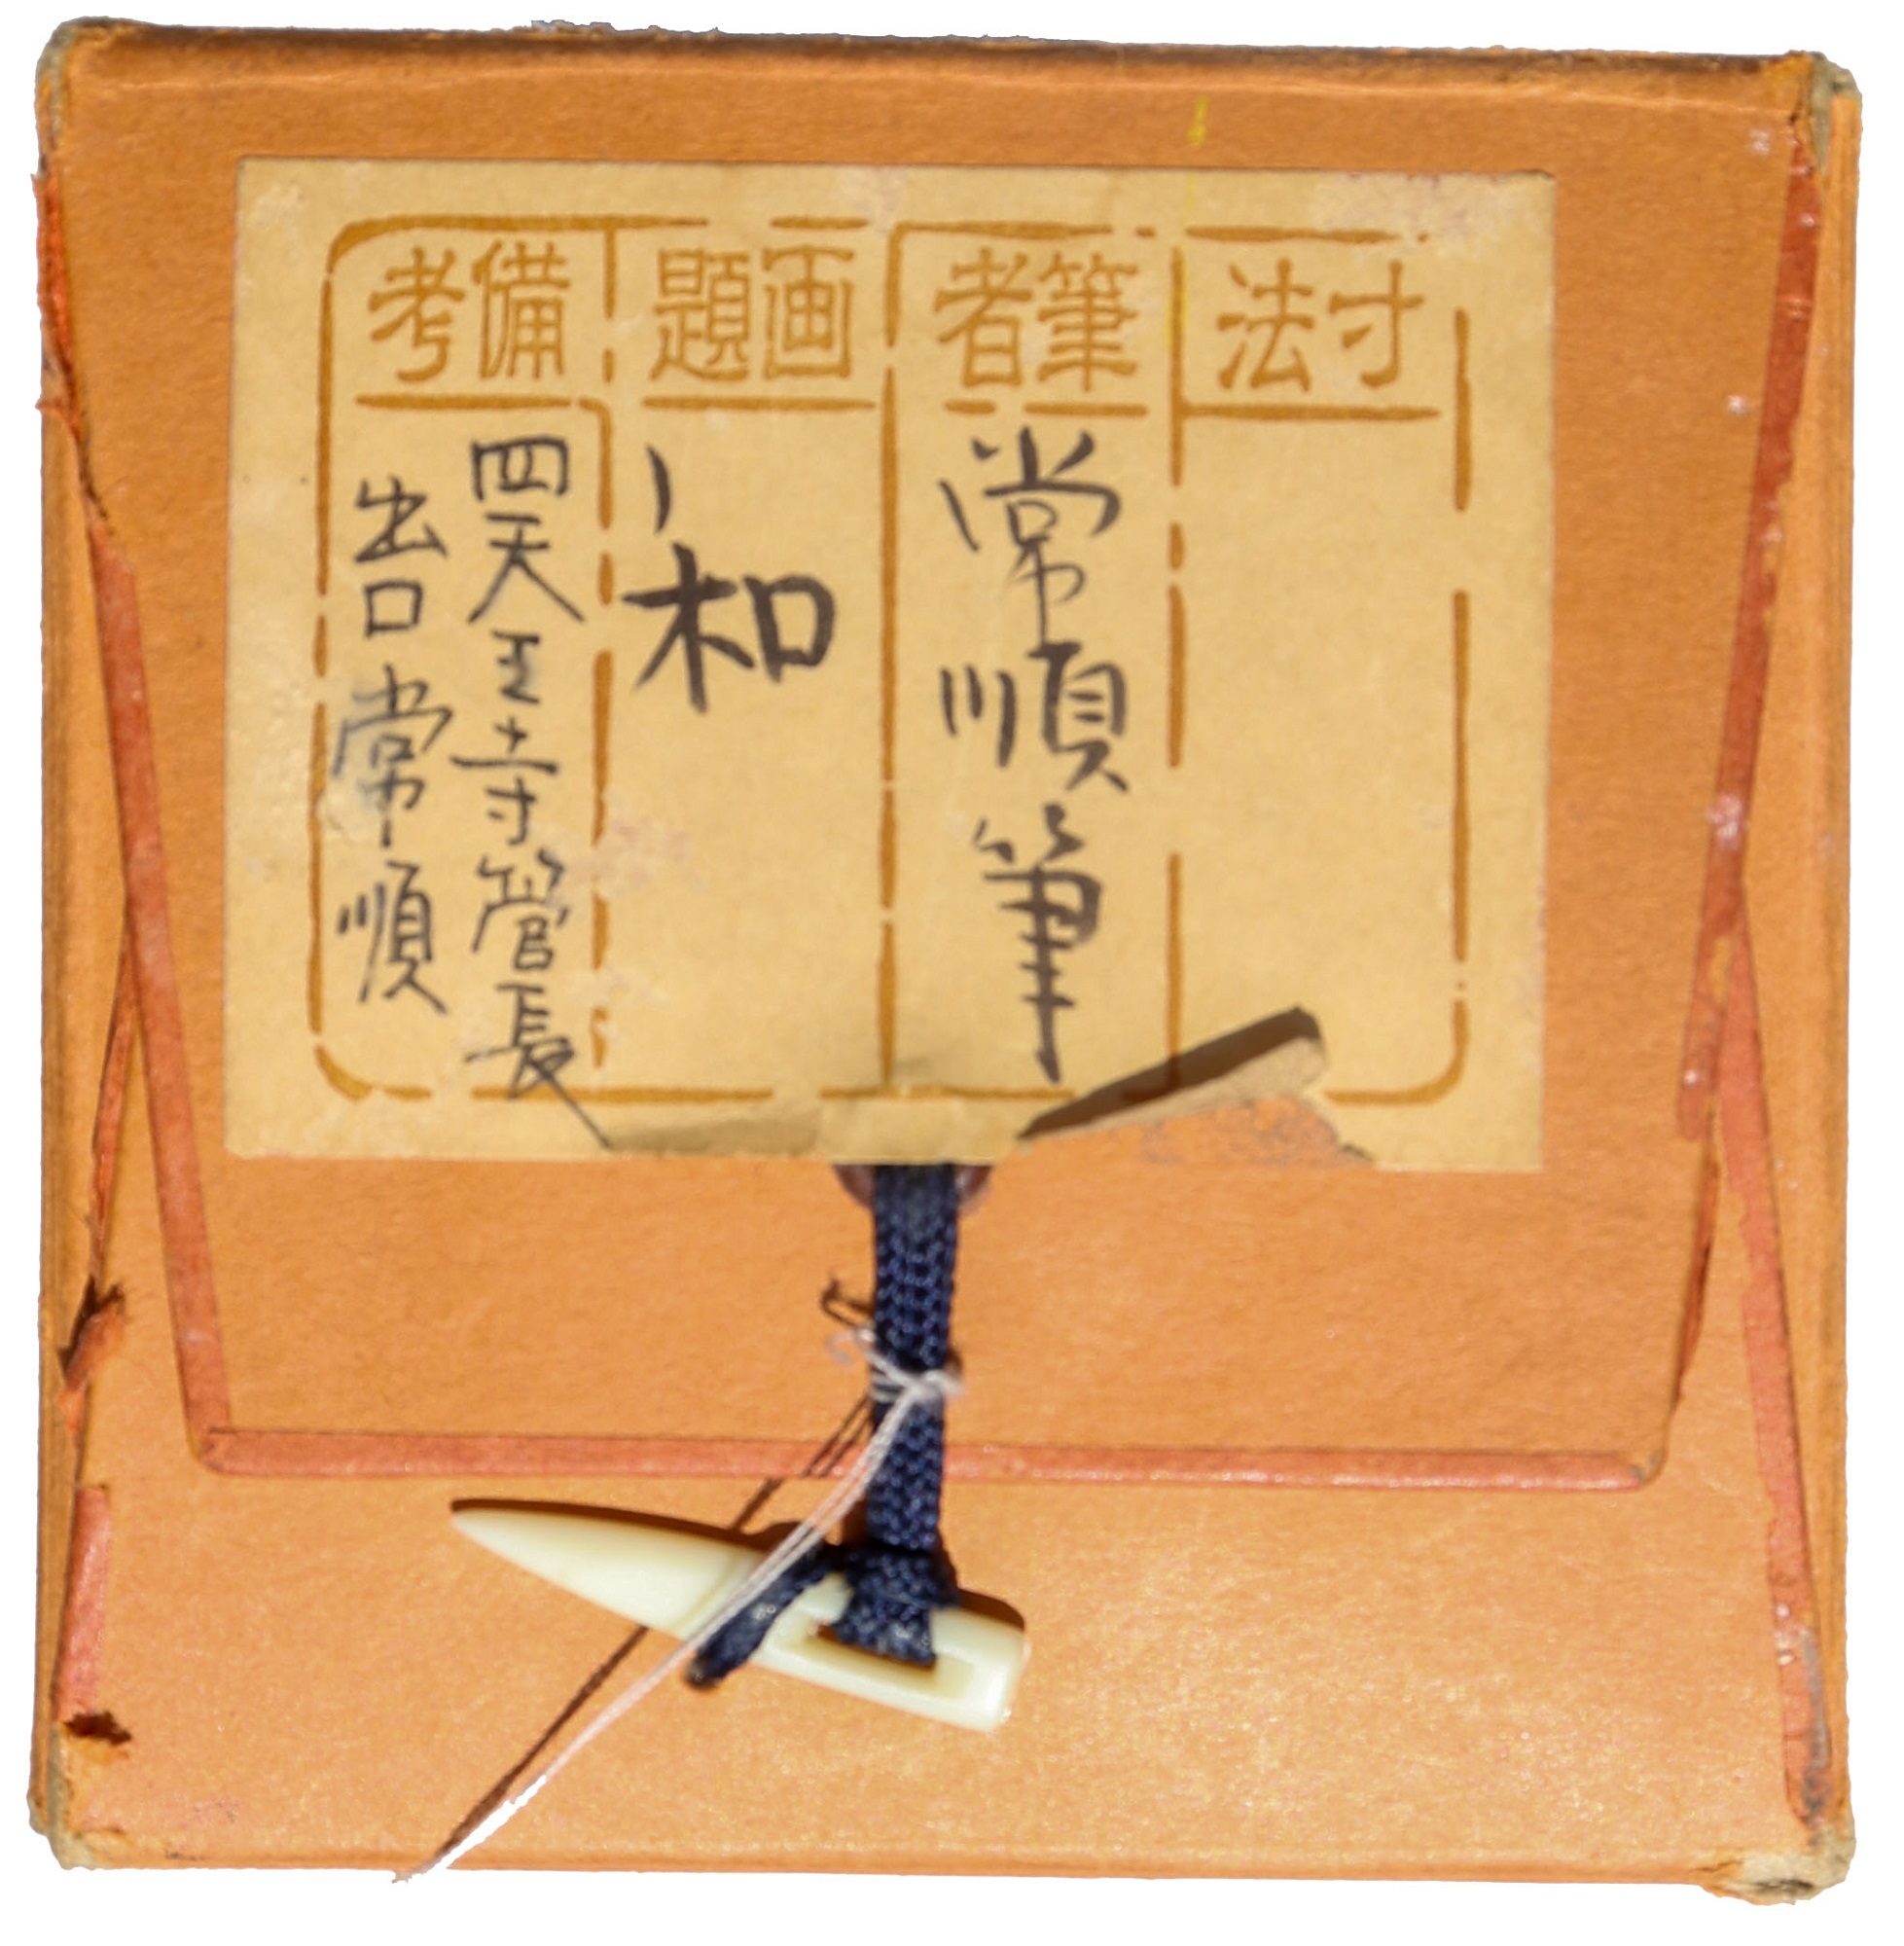 寸法
筆者
常順筆
画題
和
備考
四天王寺管長
出口常順